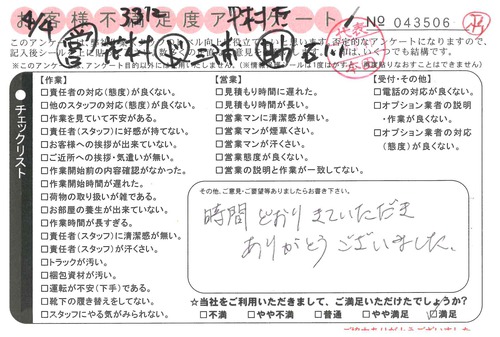 お客様不満足度アンケート
No 043506
【作業】
□責任者の対応(態度)が良くない。
□他のスタッフの対応(態度)が良くない。
□作業を見ていて不安がある。
□責任者(スタッフ)に好感が持てない。
□お客様への挨拶が出来ていない。
□ご近所への挨拶・気遣いが無い。
□作業開始前の内容確認がなかった。
□作業開始時間が遅れた。
□荷物の取り扱いが雑である。
□お部屋の養生が出来ていない。
□作業時間が長すぎる。
□責任者(スタッフ)に清潔感が無い。
□責任者(スタッフ)が汗くさい。
□トラックが汚い。
□梱包資材が汚い。
□運転が不安(下手)である。
□靴下の履き替えをしてない。
□スタッフにやる気がみられない。
【営業】
□見積もり時間に遅れた。
□見積もり時間が長い。
□営業マンに清潔感が無い。
□営業マンが煙草くさい。
□営業マンが汗くさい。
□営業態度が良くない。
□営業の説明と作業が一致してない。
【受付・その他】
□電話の対応が良くない。
□オプション業者の説明
・作業が良くない。
□オプション業者の対応
(態度)が良くない。
チェックリスト
その他、ご意見・ご要望等ありましたらお書き下さい。
時間どおりきていただき
ありがとうございました。
☆当社をご利用いただきまして、ご満足いただけたでしょうか?
□不満 □やや不満 □普通 □やや満足 □満足